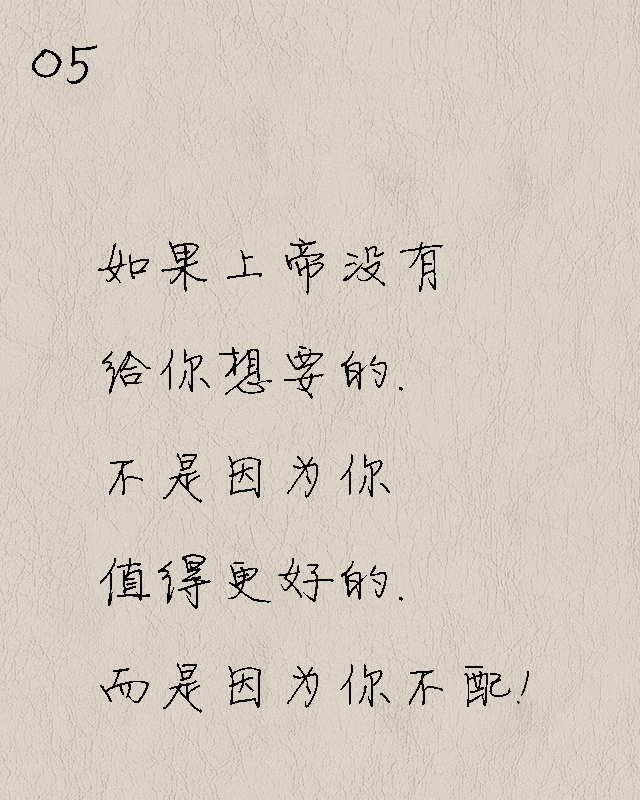 05
如果上帝没有
给你想要的.
不是因为你
值得更好的.
而是因为你不配!